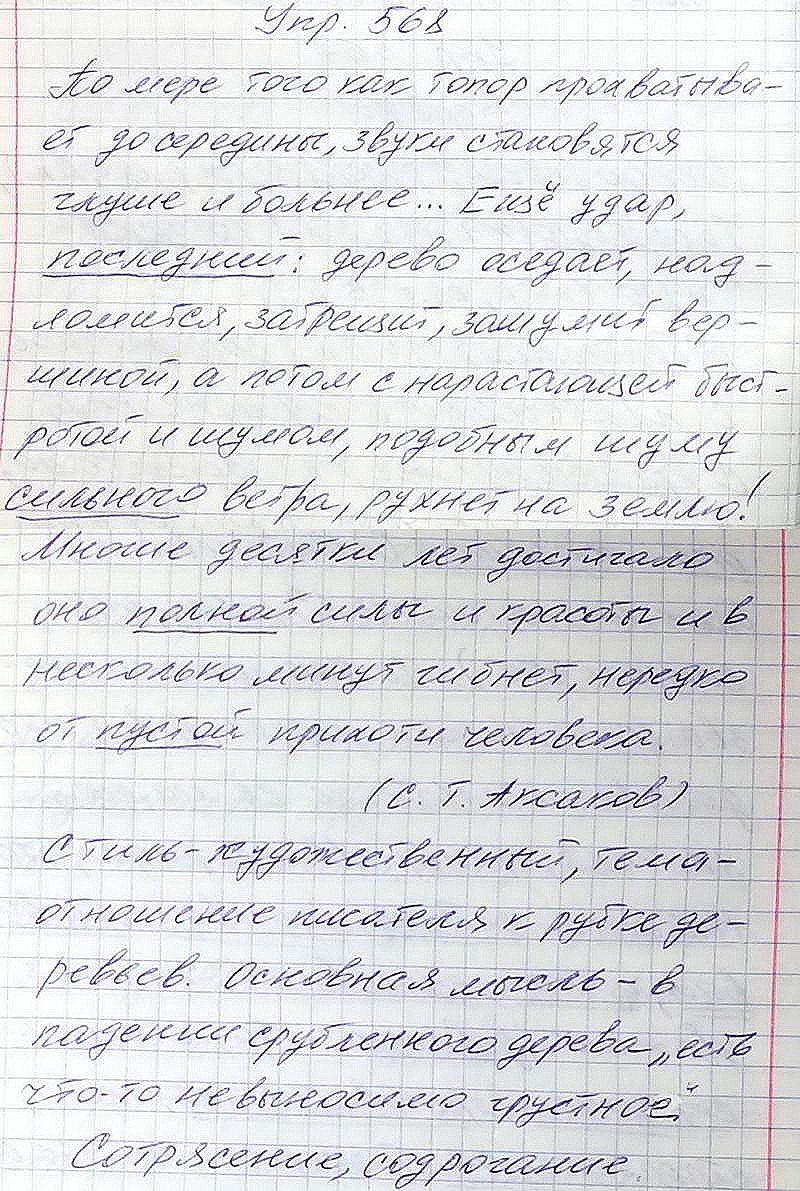 Упр. 568
По мере того как топор прохватыва-
ет до середины, звуки становятся
глуше и больнее... Ещё удар,
последний: дерево оседает, над-
ломится, затрещит, зашумит вер-
шиной, а потом с нарастающей быст-
ротой и шумом, подобным шуму
сильного ветра, рухнет на землю!
Многие десятки лет достигало
оно полной силы и красоты и в
несколько минут гибнет, нередко
от пустой прихоти человека.
(С. Т. Аксаков)
Стиль - художественный, тема -
отношение писателя к рубке де-
ревьев. Основная мысль - в
падении срубленного дерева „есть
что-то невыносимо грустное".
Сотрясение, содрогание.